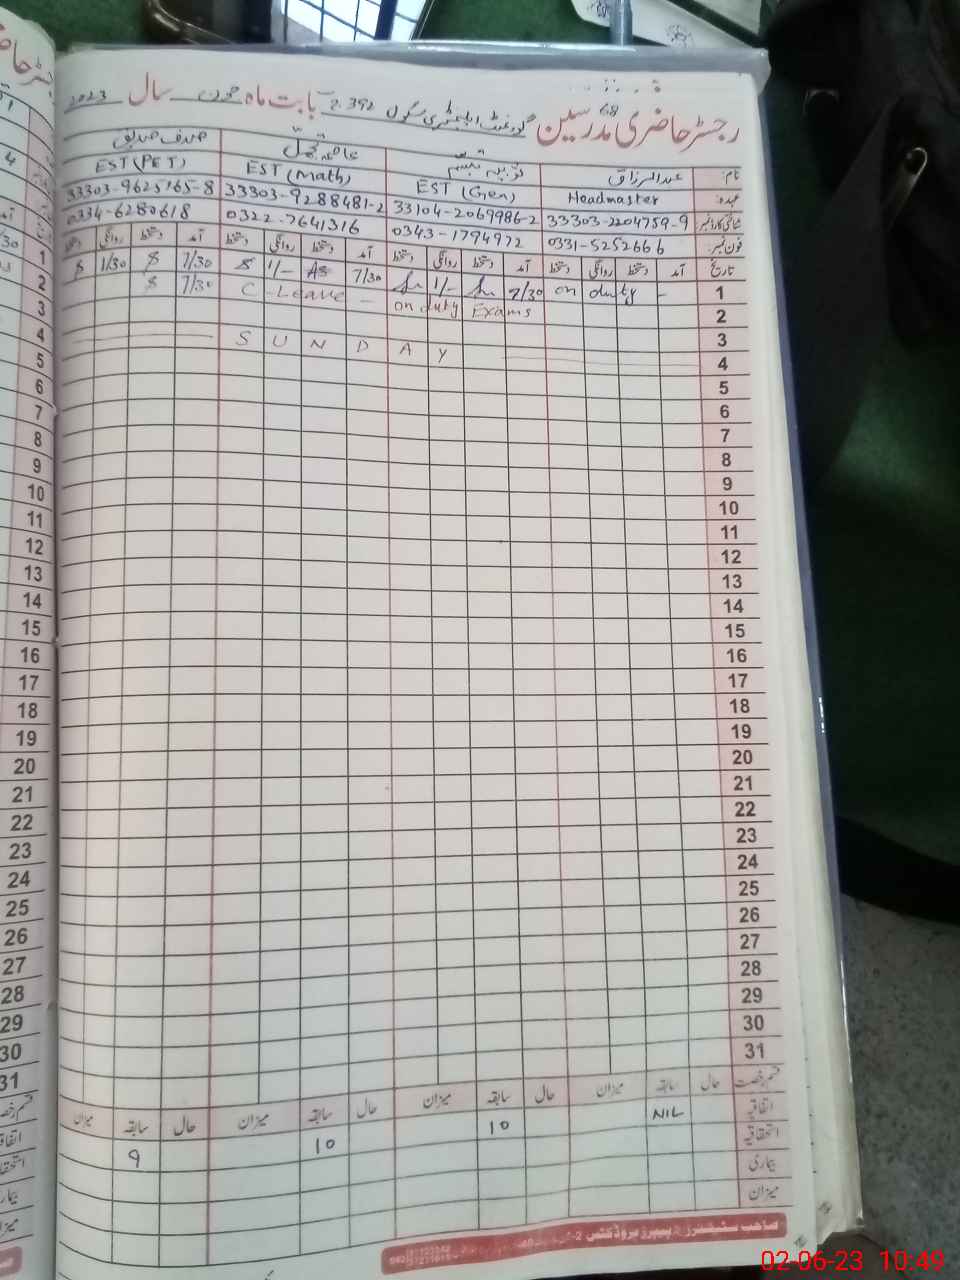 رجسٹر حاضری مدرسین 68 گورنمنٹ ایلیمنٹری سکول 2.392 بابت ماہ جون سال 2023
نام: عبدالرزاق صدف صدیق
عہدہ: Headmaster EST (Gen) EST (Math) EST (PET)
شناختی کارڈ نمبر 33303-2204759-9 33104-2069986-2 33303-9288481-2 33303-9625765-8
فون نمبر: 0331-5252666 0343-1794972 0322-7641316 0334-6280618
تاریخ آمد دستخط روانگی دستخط آمد دستخط روانگی دستخط آمد دستخط روانگی دستخط آمد دستخط روانگی دستخط
1 - on duty 7/30 1/- 7/30 1/- 7/30 1/30
2 on duty Exams - C-Leave 7/30
3
4 S U N D A Y
5
6
7
8
9
10
11
12
13
14
15
16
17
18
19
20
21
22
23
24
25
26
27
28
29
30
31
قسم رخصت حال سابقہ میزان حال سابقہ میزان حال سابقہ میزان حال سابقہ میزان
اتفاقیہ NIL 10 10 9
استحقاقیہ
بیماری
میزان
02-06-23 10:49